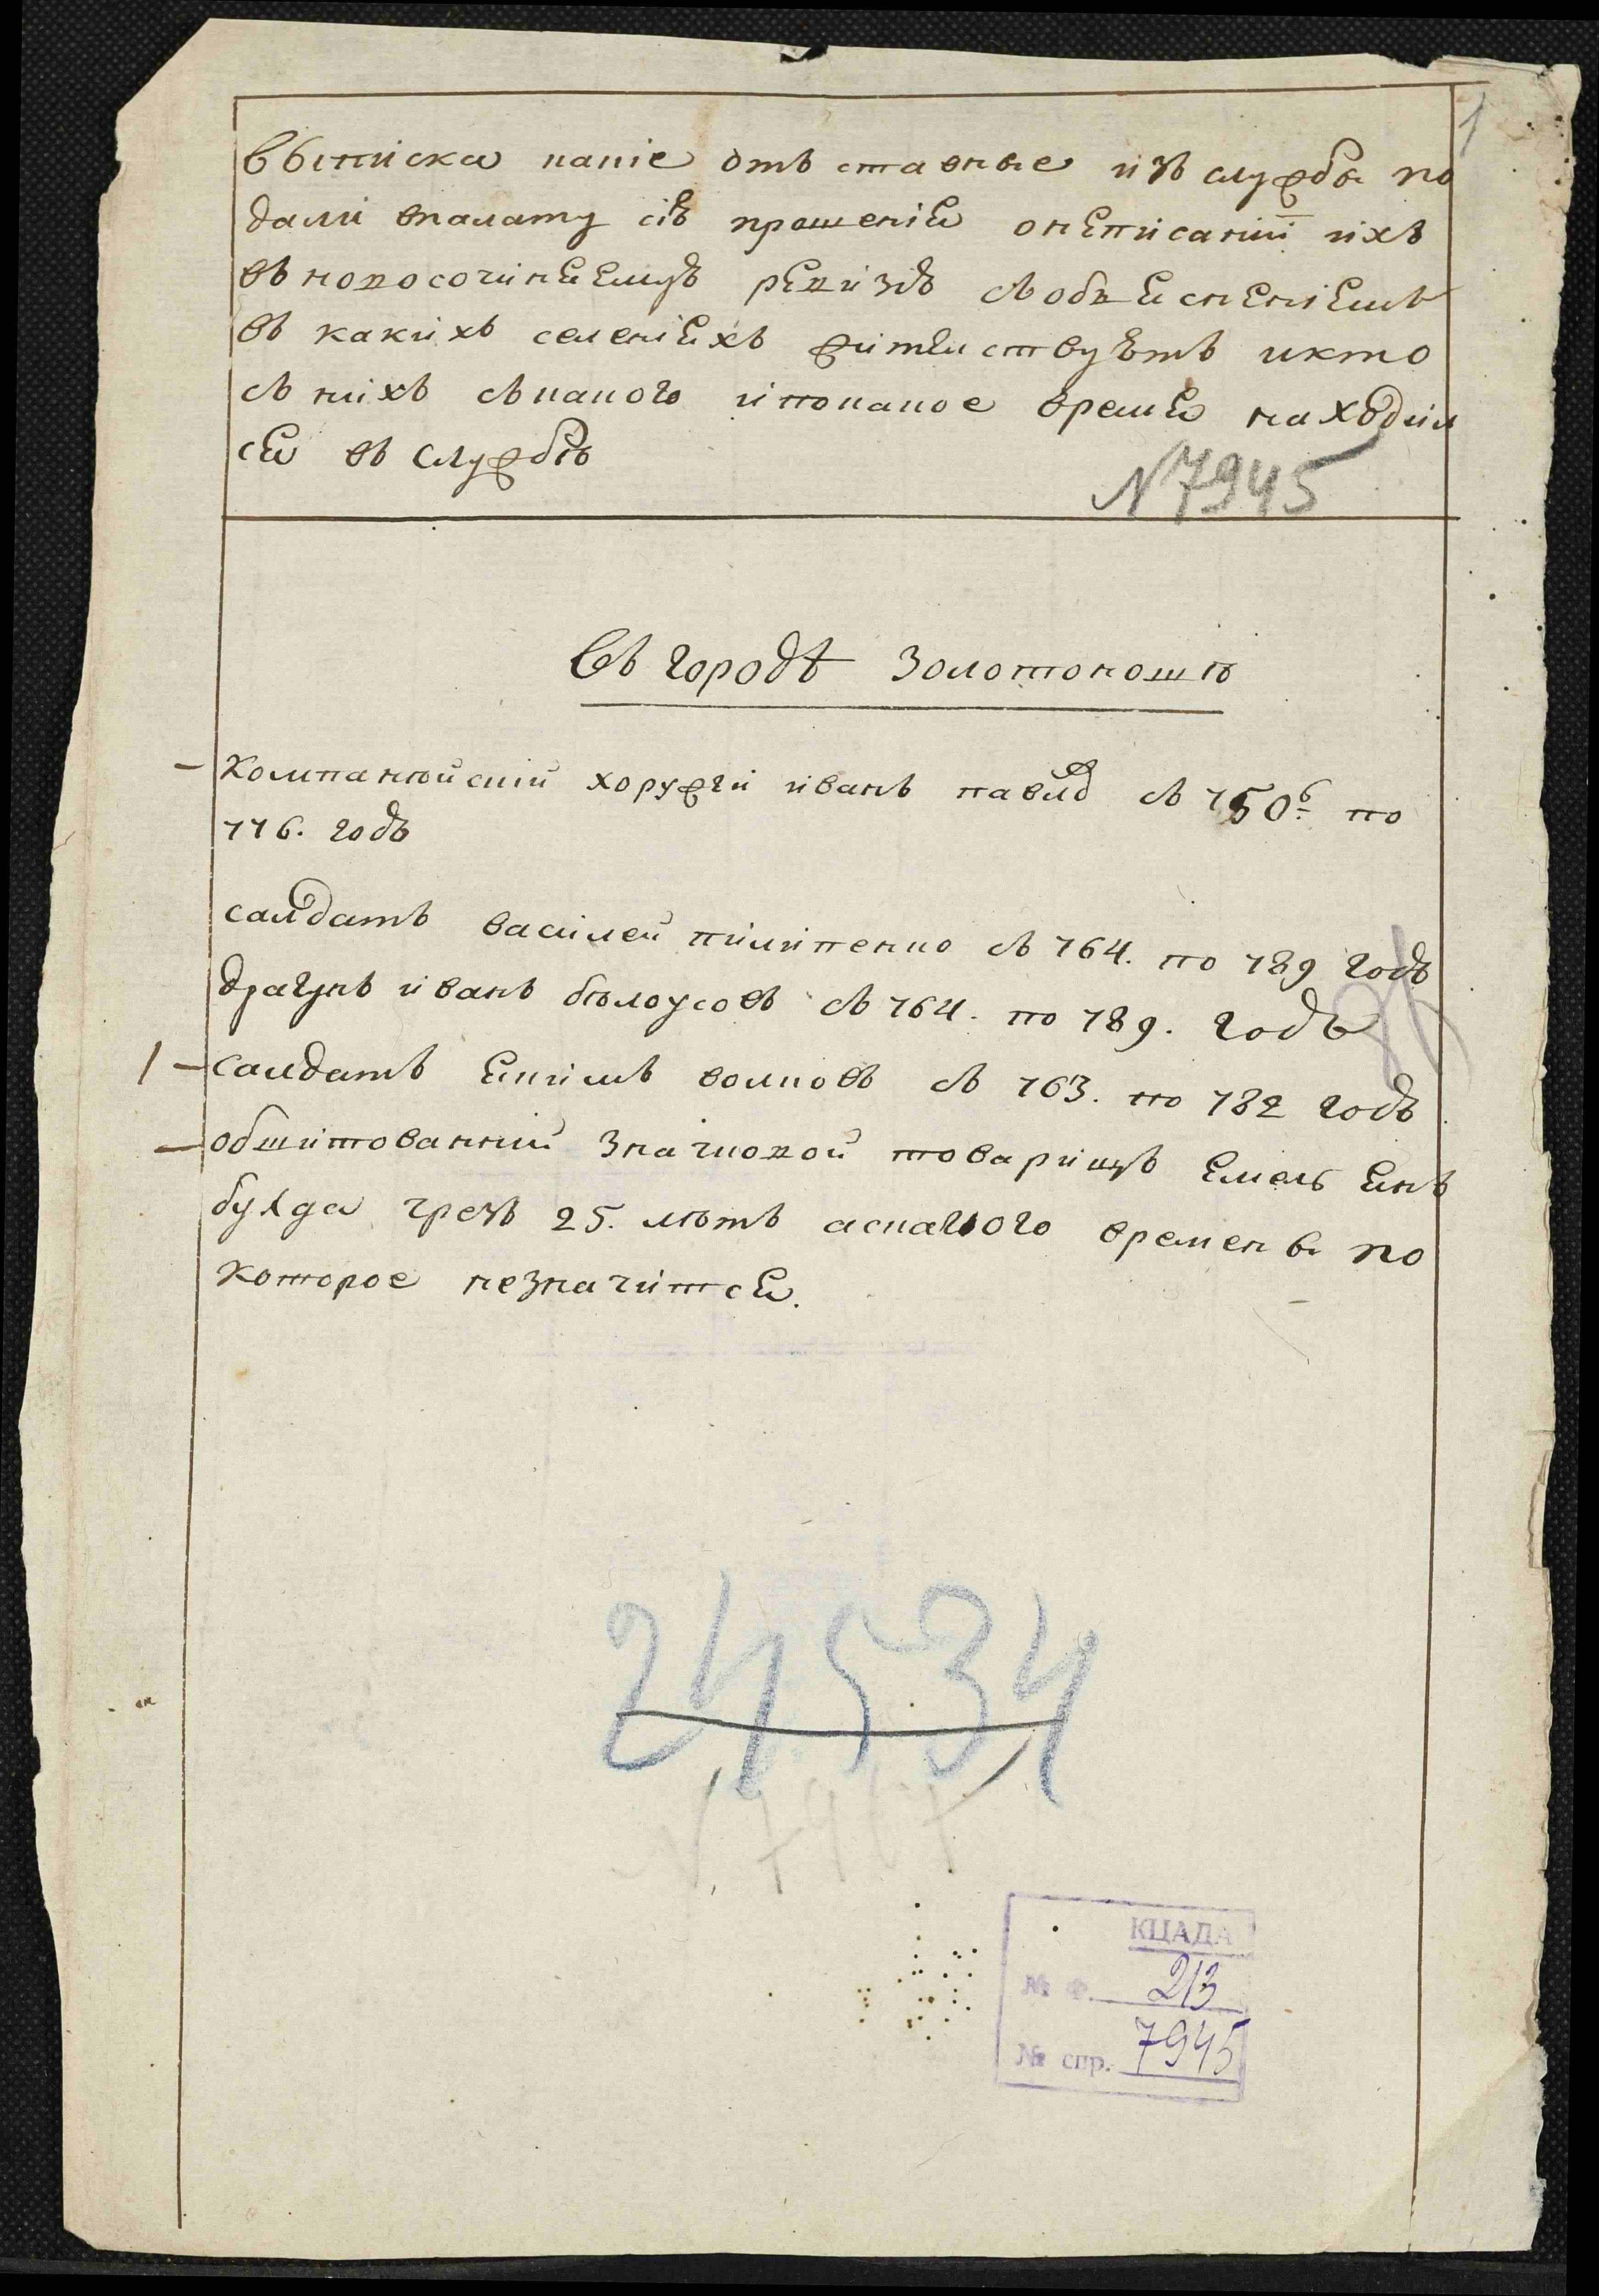 1
Выписка какіе отъ ставные изъ службы по
дали впалату сіѣ прошенія онеписаніи ихъ
въ новосочиняемуъ ревизію съ обяснениемъ
въ какихъ селеніяхъ жителствуетъ икто
съ нихъ съкакого ипокакое время находил
ся въ службѣ
N 7945
Въ городѣ Золотоношѣ
Компанѣйскій хоружгій иванъ съ 750г по
776. годъ
салдатъ василей пилипенко съ 764. по 789 годъ
драгунъ иванъ бѣлоусовъ съ 764. по 789. годъ
1 салдатъ Екимъ волковъ съ 763. по 782 годъ
обшитованній значковой товарищъ Емельянъ
булда чрезъ 25. лѣтъ аскакого времены по
которое незначится.
24534
КЦАДА
№ ф. 213
№ спр. 7945